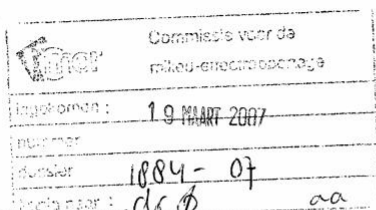 Commissie voor de
milieu-effectrapportage
ingekomen : 19 MAART 2007
nummer
dossier 1884 - 07
kopie naar :